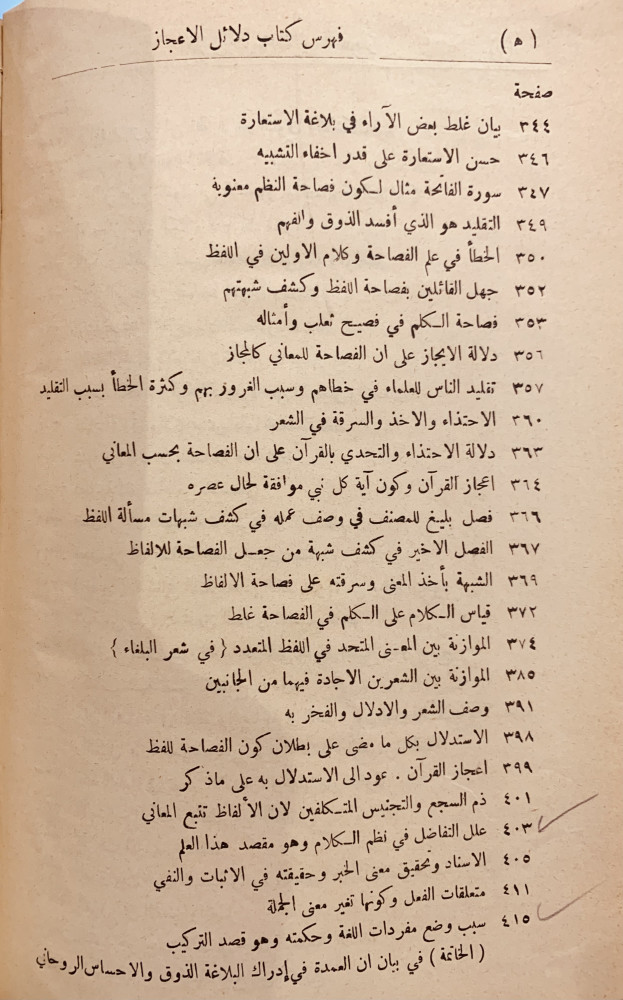 (ه) فهرس كتاب دلائل الاعجاز
صفحة
٣٤٤ بيان غلط بعض الآراء في بلاغة الاستعارة
٣٤٦ حسن الاستعارة على قدر اخفاء التشبيه
٣٤٧ سورة الفاتحة مثال لكون فصاحة النظم معنوية
٣٤٩ التقليد هو الذي أفسد الذوق والفهم
٣٥٠ الخطأ في علم الفصاحة وكلام الاولين في اللفظ
٣٥٢ جهل القائلين بفصاحة اللفظ وكشف شبهتهم
٣٥٣ فصاحة الكلم في فصيح ثعلب وأمثاله
٣٥٦ دلالة الايجاز على ان الفصاحة للمعاني كالمجاز
٣٥٧ تقليد الناس للعلماء في خطاهم وسبب الغرور بهم وكثرة الخطأ بسبب التقليد
٣٦٠ الاحتذاء والاخذ والسرقة في الشعر
٣٦٣ دلالة الاحتذاء والتحدي بالقرآن على ان الفصاحة بحسب المعاني
٣٦٤ اعجاز القرآن وكون آية كل نبي موافقة لحال عصره
٣٦٦ فصل بليغ للمصنف في وصف عمله في كشف شبهات مسألة اللفظ
٣٦٧ الفصل الاخير في كشف شبهة من جعل الفصاحة للالفاظ
٣٦٩ الشبهة بأخذ المعنى وسرقته على فصاحة الالفاظ
٣٧٢ قياس الكلام على الكلم في الفصاحة غلط
٣٧٤ الموازنة بين المعنى المتحد في اللفظ المتعدد { في شعر البلغاء }
٣٨٥ الموازنة بين الشعرين الاجادة فيهما من الجانبين
٣٩١ وصف الشعر والادلال والفخر به
٣٩٨ الاستدلال بكل ما مضى على بطلان كون الفصاحة للفظ
٣٩٩ اعجاز القرآن . عود الى الاستدلال به على ماذكر
٤٠١ ذم السجع والتجنيس المتكلفين لان الألفاظ تتبع المعاني
٤٠٣ علل التفاضل في نظم الكلام وهو مقصد هذا العلم
٤٠٥ الاسناد وتحقيق معنى الخبر وحقيقته في الاثبات والنفي
٤١١ متعلقات الفعل وكونها تغير معنى الجملة
٤١٥ سبب وضع مفردات اللغة وحكمته وهو قصد التركيب
(الخاتمة) في بيان ان العمدة في إدراك البلاغة الذوق والاحساس الروحاني